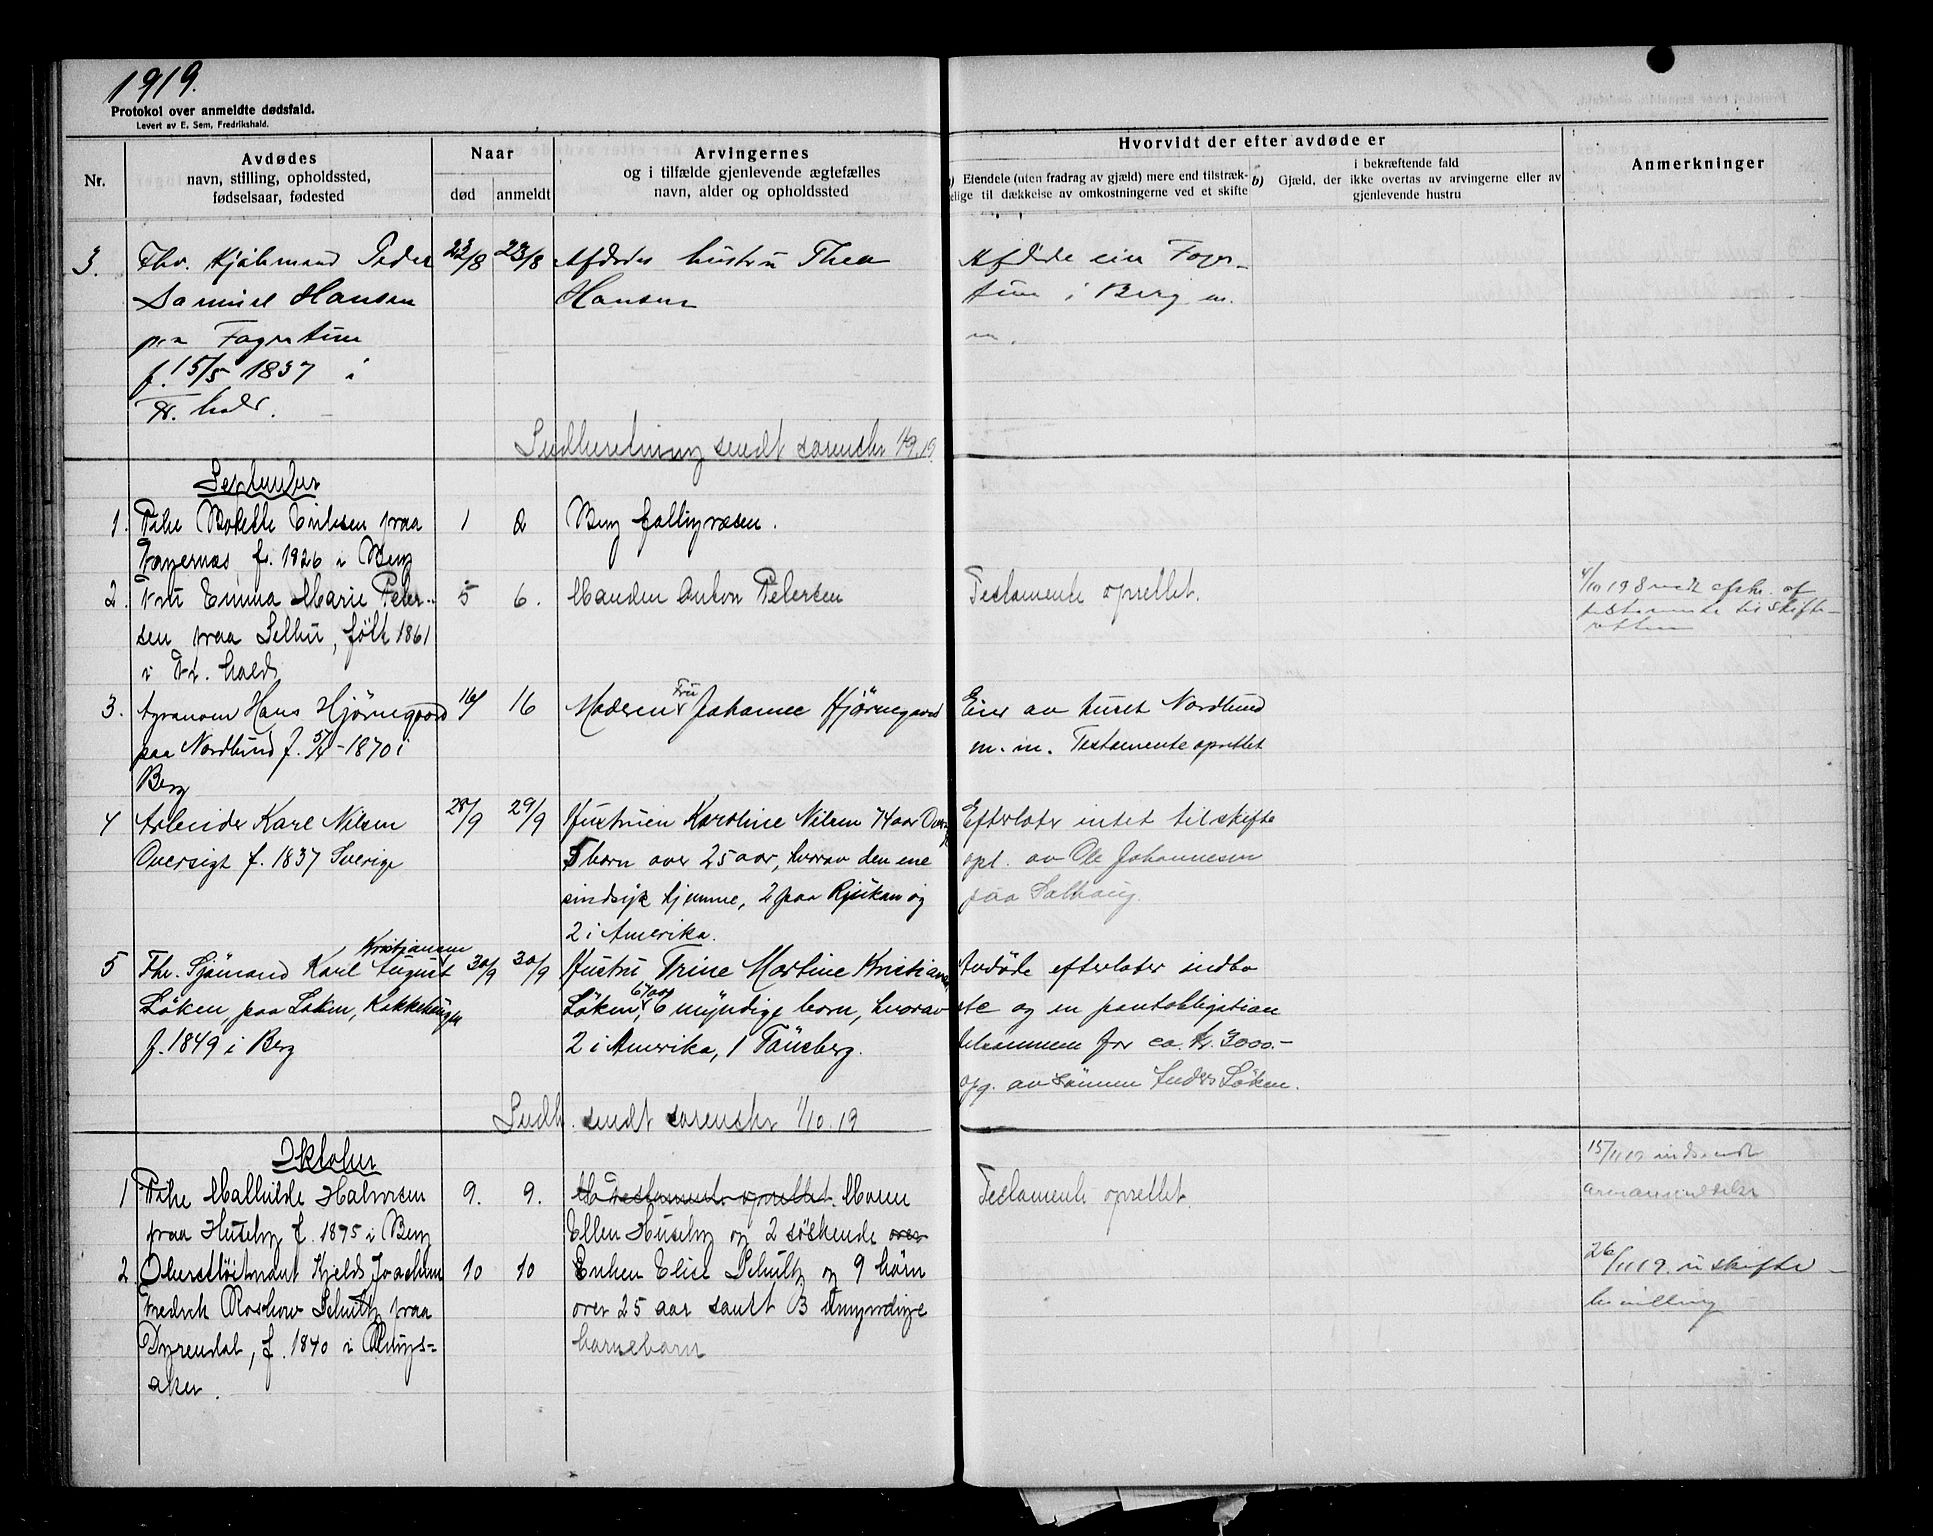 1919.
Protokol over anmeldte dødsfald.
Levert av E. Sem, Fredrikshald.
Nr.
Avdødes
navn, stilling, opholdssted,
fødselsaar, fødested
Naar
død
anmeldt
Arvingernes
og i tilfælde gjenlevende ægtefælles
navn, alder og opholdssted
Hvorvidt der efter avdøde er
Eiendele (uten fradrag av gjæld) mere end tilstræk-
elige til dækkelse av omkostningerne ved et skifte
b) Gjæld, der
i bekræftende fald
ikke overtas av arvingerne eller av
gjenlevende hustru
Anmerkninger
3. Fhv. Peder
Samuel Hansen
Fagertun
f. 15/5 1837 i
Fr. hald.
22/8 23/8
Afdødes hustru Thea
Hansen
Afdøde eier Fager-
tun i Berg m.
m.
Indberetning sendt sorenskr 1/9.19
September
1. Pike Bolette Eriksen paa
f. 1826 i Berg
1 2
Berg fattigvæsen.
2. Fru Emma Marie Peter-
sen paa Solbu, født 1861
i Fr. hald
5 6.
Manden Anton Petersen
Testamente oprettet.
4/10 19 Sendt afskr. af
testamente til skifte-
retten
3. Agronom Hans Hjørnegaard
paa Nordlund f. 1870 i
Berg
16/ 16
Moderen Fru Johanne Hjørnegaard
Eier av huset Nordlund
m. m. Testamente oprettet
4 Arbeider Karl Nilsen
Oversigt f. 1837 Sverige
28/9 29/9
Hustruen Karoline Nilsen 74 aar
5 barn over 25 aar, hvorav den ene
sindsyk hjemme, 2 paa Rjukan og
2 i Amerika.
Efterlater intet til skifte
opl. av Ole Johannesen
paa Solhaug.
5 Fhv. Sjømand Karl August Kristjansen
Løken, paa Løken,
f. 1849 i Berg
30/9 30/9
Hustru Trine Martine Kristiansen
Løken, 67 aar 6 myndige barn, hvorav
2 i Amerika, 1 Tønsberg.
Avdøde efterlater indbo
etc og en pantobligation
tilsammen for ca. Kr. 3000.-
opg. av sønnen Anders Løken.
Indb. sendt sorenskr 1/10.19
Oktober
1 Pike Mathilde Halvorsen
paa Huseby f. 1875 i Berg
9. 9.
Testament oprettet. Moren
Ellen Huseby og 2 søskende over
Testamente oprettet.
15/11 19 indsendt
2 Oberstløitnant Kjeld Joachim
Fredrik Roschow Schultz paa
Dyrendal, f. 1840 i Rings-
aker.
10 10
Enken Elise Schultz og 9 børn
over 25 aar samt 3 umyndige
barnebarn
26/11 19. uskifte-
bevilling